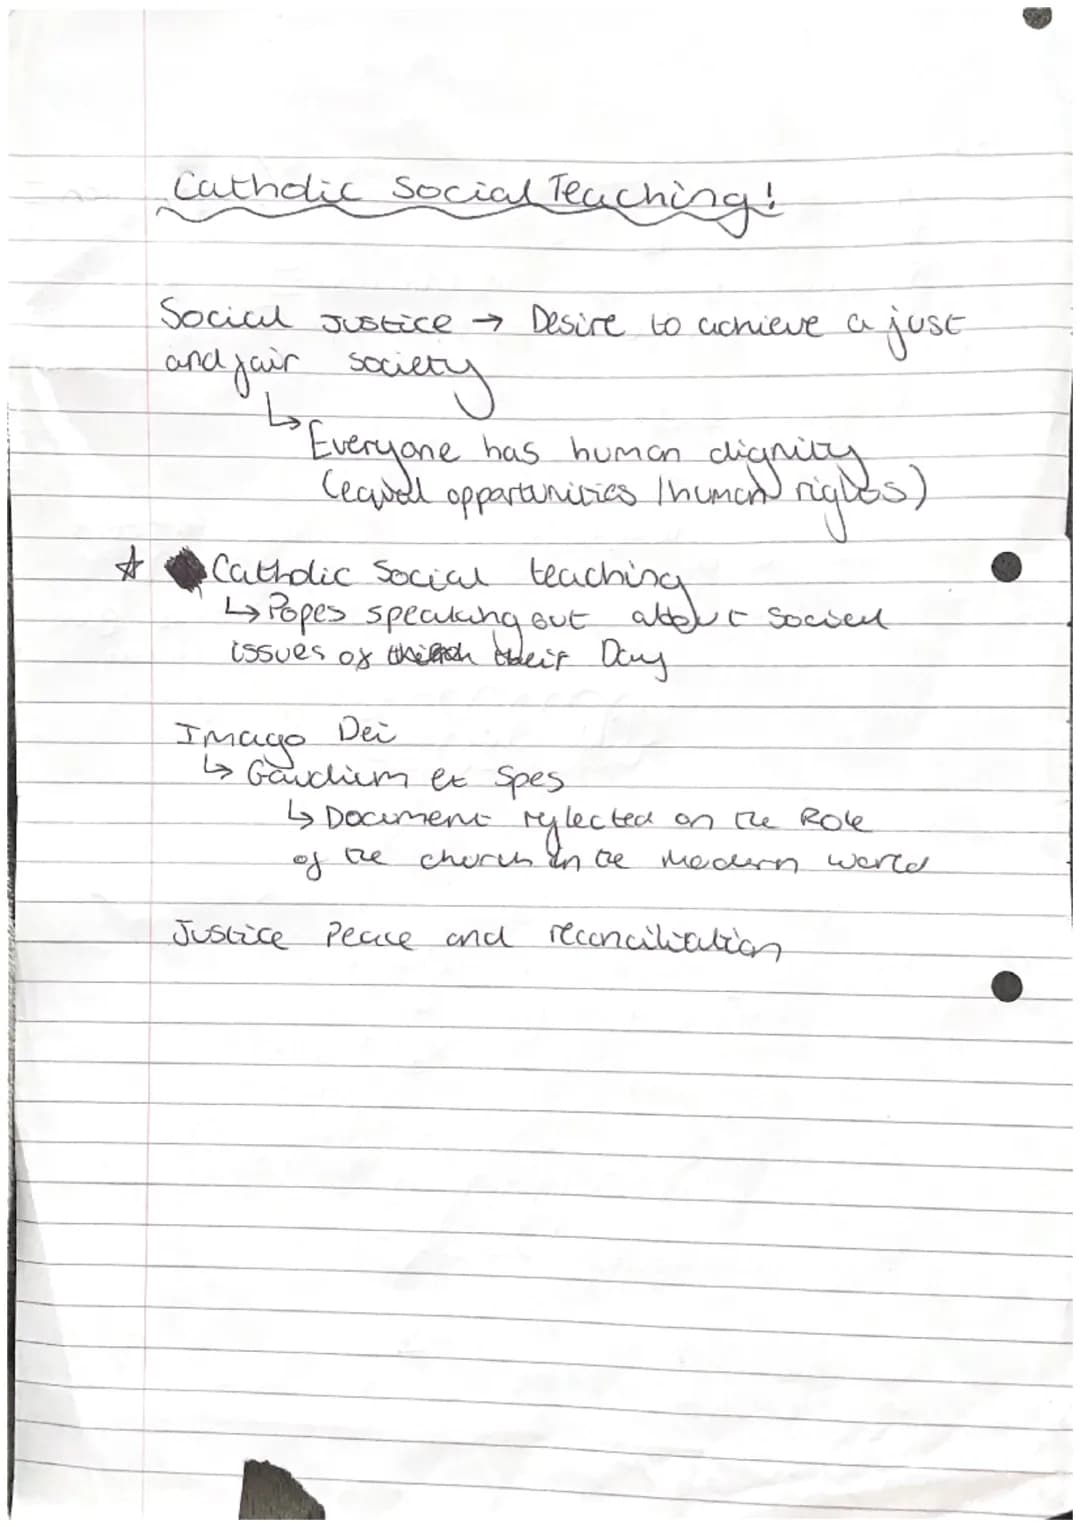 Catholic Social Teaching!
Social Justice → Desire to achieve a just
and fair society
↳ Everyone has human dignity
(equal opportunities / human rights)
☆ Catholic Social teaching
↳ Popes speaking out about social
issues of their Day
Imago Dei
↳ Gaudium et Spes
↳ Document reflected on the Role
of the church in the modern world
Justice Peace and reconciliation